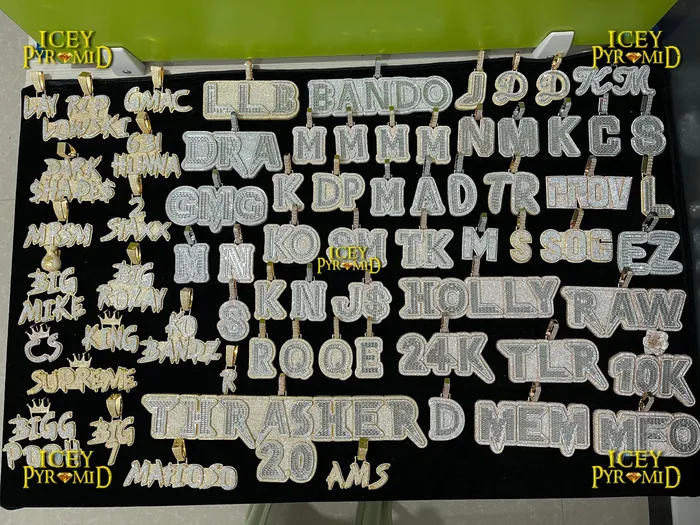 ICEY
PYRAMID
ICEY
PYRAMID
GMAC
LLB
BANDO
J
D
D
KM
DRA
M
M
M
M
N
M
K
C
S
HENNA
DARK
SHADES
GMG
K
DP
M
A
D
TR
TROV
L
2
STAXX
M
N
KO
TK
M
S
SOG
EZ
ICEY
PYRAMID
BIG
MIKE
BIG
S
K
N
J$
HOLLY
RAW
CS
KING
KO
BANDZ
R
O
O
E
24K
TLR
10K
SUPREME
R
BIGG
BIG
THRASHER
D
MEM
MFO
20
AMS
ICEY
PYRAMID
ICEY
PYRAMID